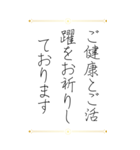 ご健康とご活
躍をお祈りし
ております